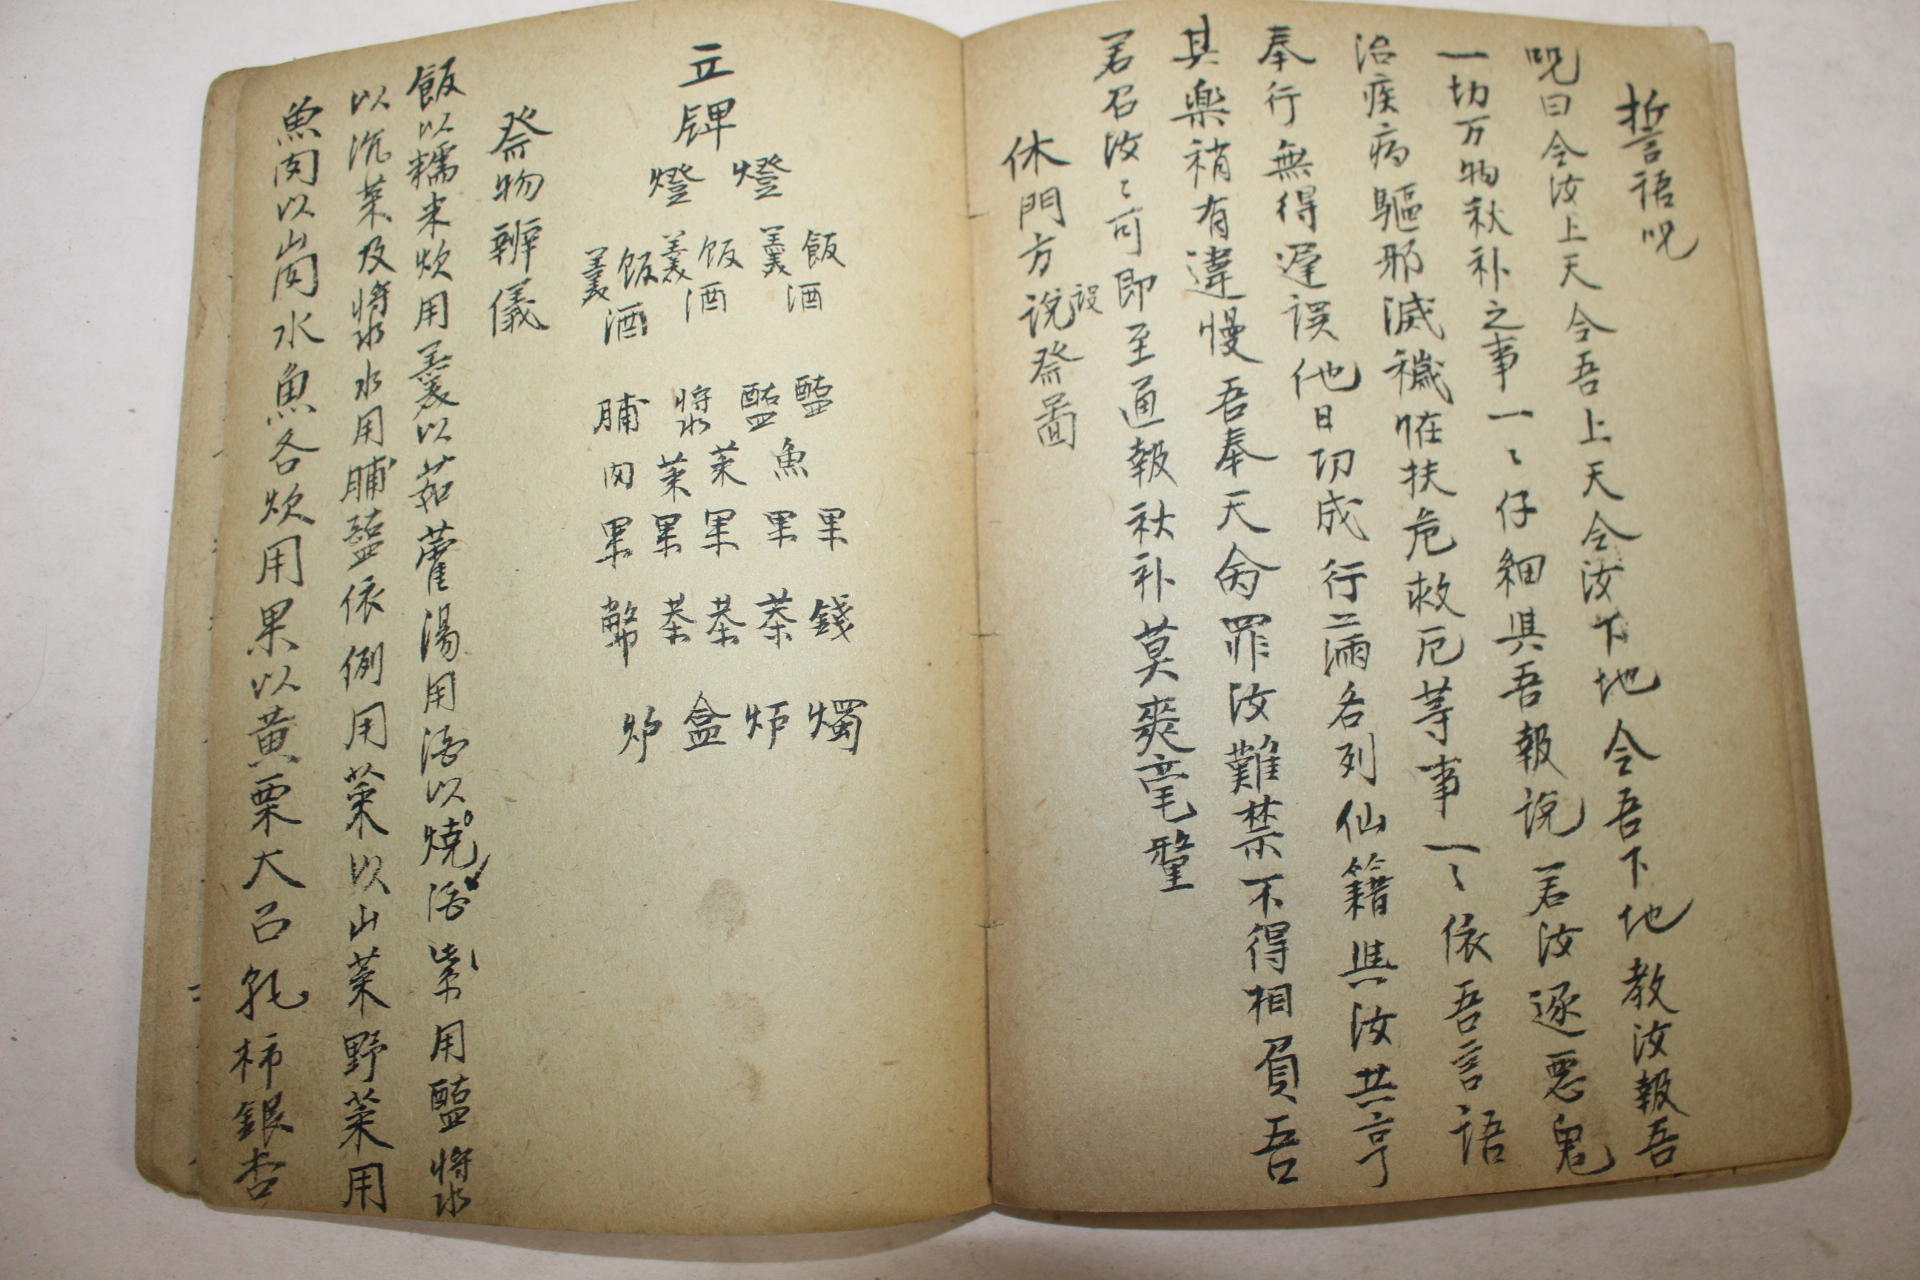 誓語呪
呪曰令汝上天令吾上天令汝下地令吾下地教汝報吾
一切万物秋补之事一〻仔細具吾報說若汝逐惡鬼
治疾病驅邪滅穢 扶危救厄等事一〻依吾言語
奉行無得遲誤他日功成行滿各列仙籍與汝共享
其樂稍有違慢吾奉天命罪汝難禁不得相負吾
若召汝〻可即至通報秋补莫爽毫釐
休門方說設祭圖
立牌
燈 燈
飯羹酒 飯羹酒 飯羹酒
醢 醢 漿 脯
魚 菜 菜 肉
果 果 果 果 果
錢 茶 茶 茶 幣
燭 炉 盒 炉
祭物辨儀
飯以糯米炊用羹以茹藿湯用酒以燒酒 用醢漿
以沉菜及漿水用脯 依例用菜以山菜野菜用
魚肉以 水魚各炊用果以黄栗大召乹柿銀杏